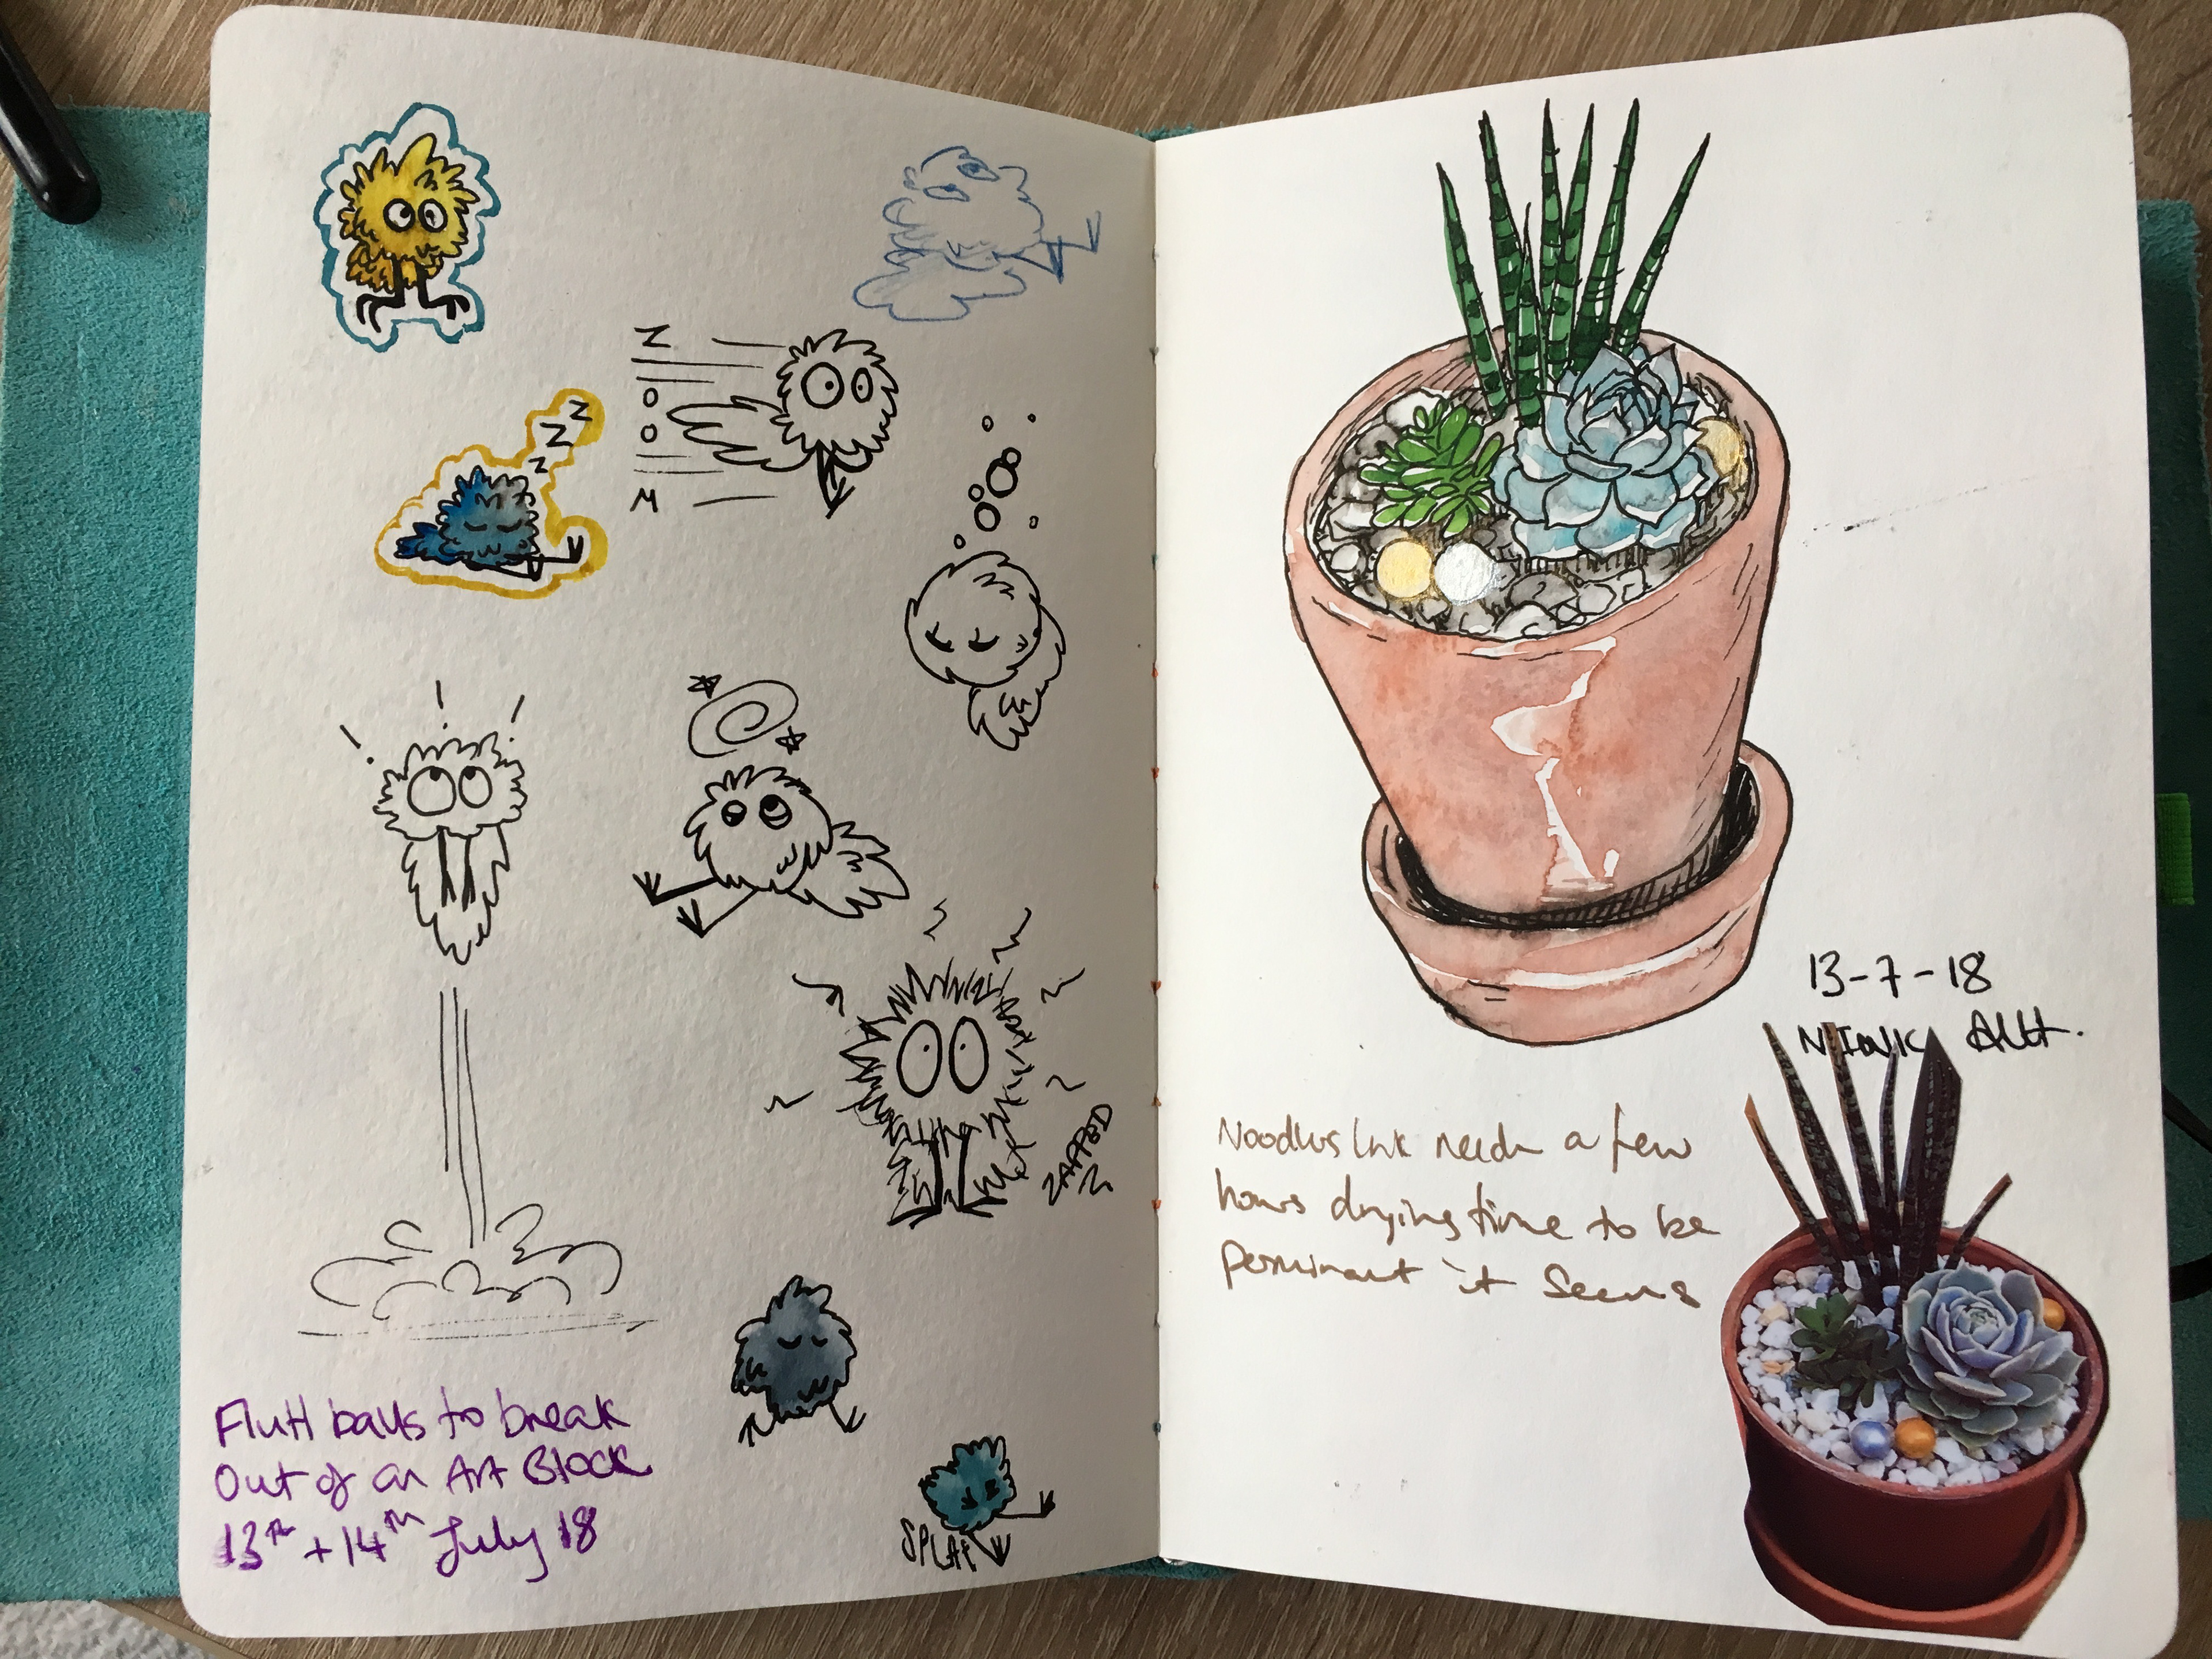 Z
O
O
M
z
Z
Z
! ! !
ZAPPED
Fluff balls to break
Out of an Art Block
13th + 14th July 18
SPLAT
13-7-18
Noodlers Ink needs a few
hours drying time to be
perminant it Seems